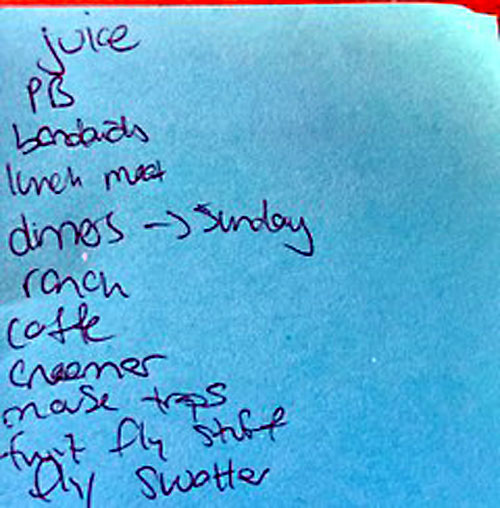 juice
PB
bandaids
lunch meat
dinners → Sunday
ranch
coffe
creamer
mouse traps
fruit fly stuff
fly swatter